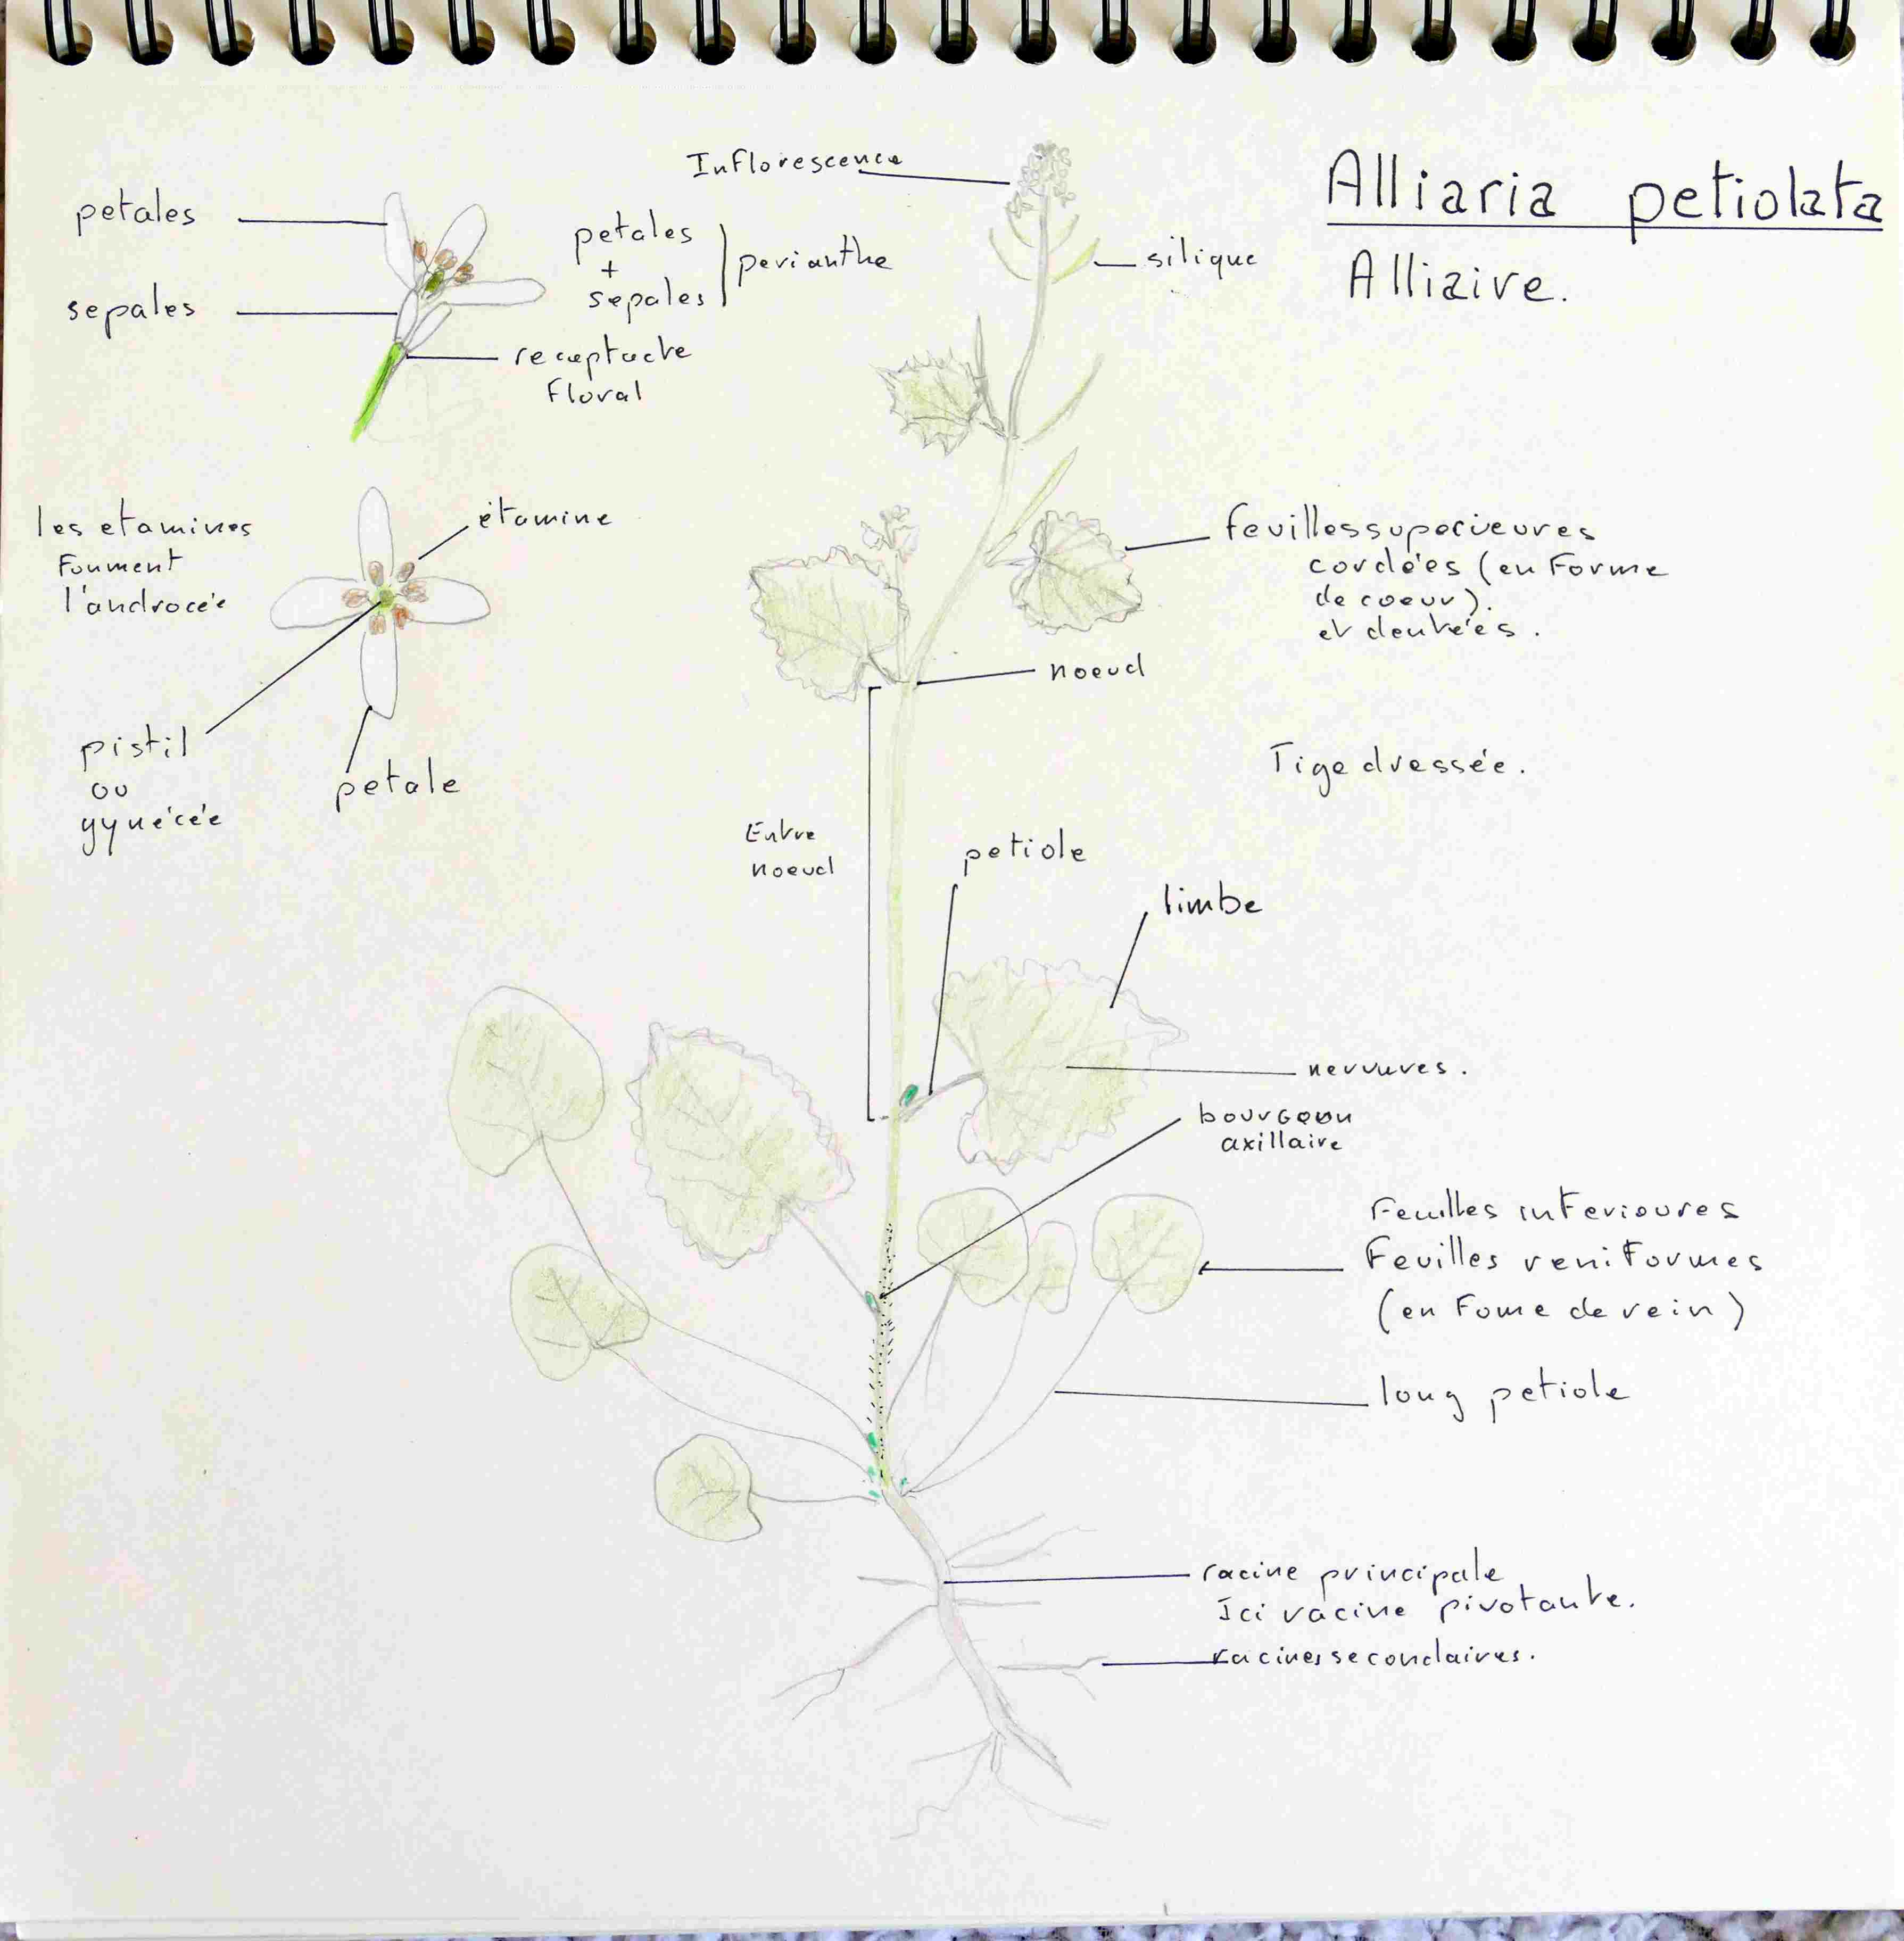 Alliaria petiolata
Alliaire.
Inflorescence
silique
petales
sepales
petales
+
sepales
perianthe
receptacle
floral
les etamines
forment
l'androcée
étamine
pistil
ou
gynécée
petale
feuilles superieures
cordées (en forme
de coeur).
et dentées.
noeud
Tige dressée.
Entre
noeud
petiole
limbe
nervures.
bourgeon
axillaire
Feuilles inferieures
Feuilles reniformes
(en forme de rein)
long petiole
racine principale
Ici racine pivotante.
racines secondaires.